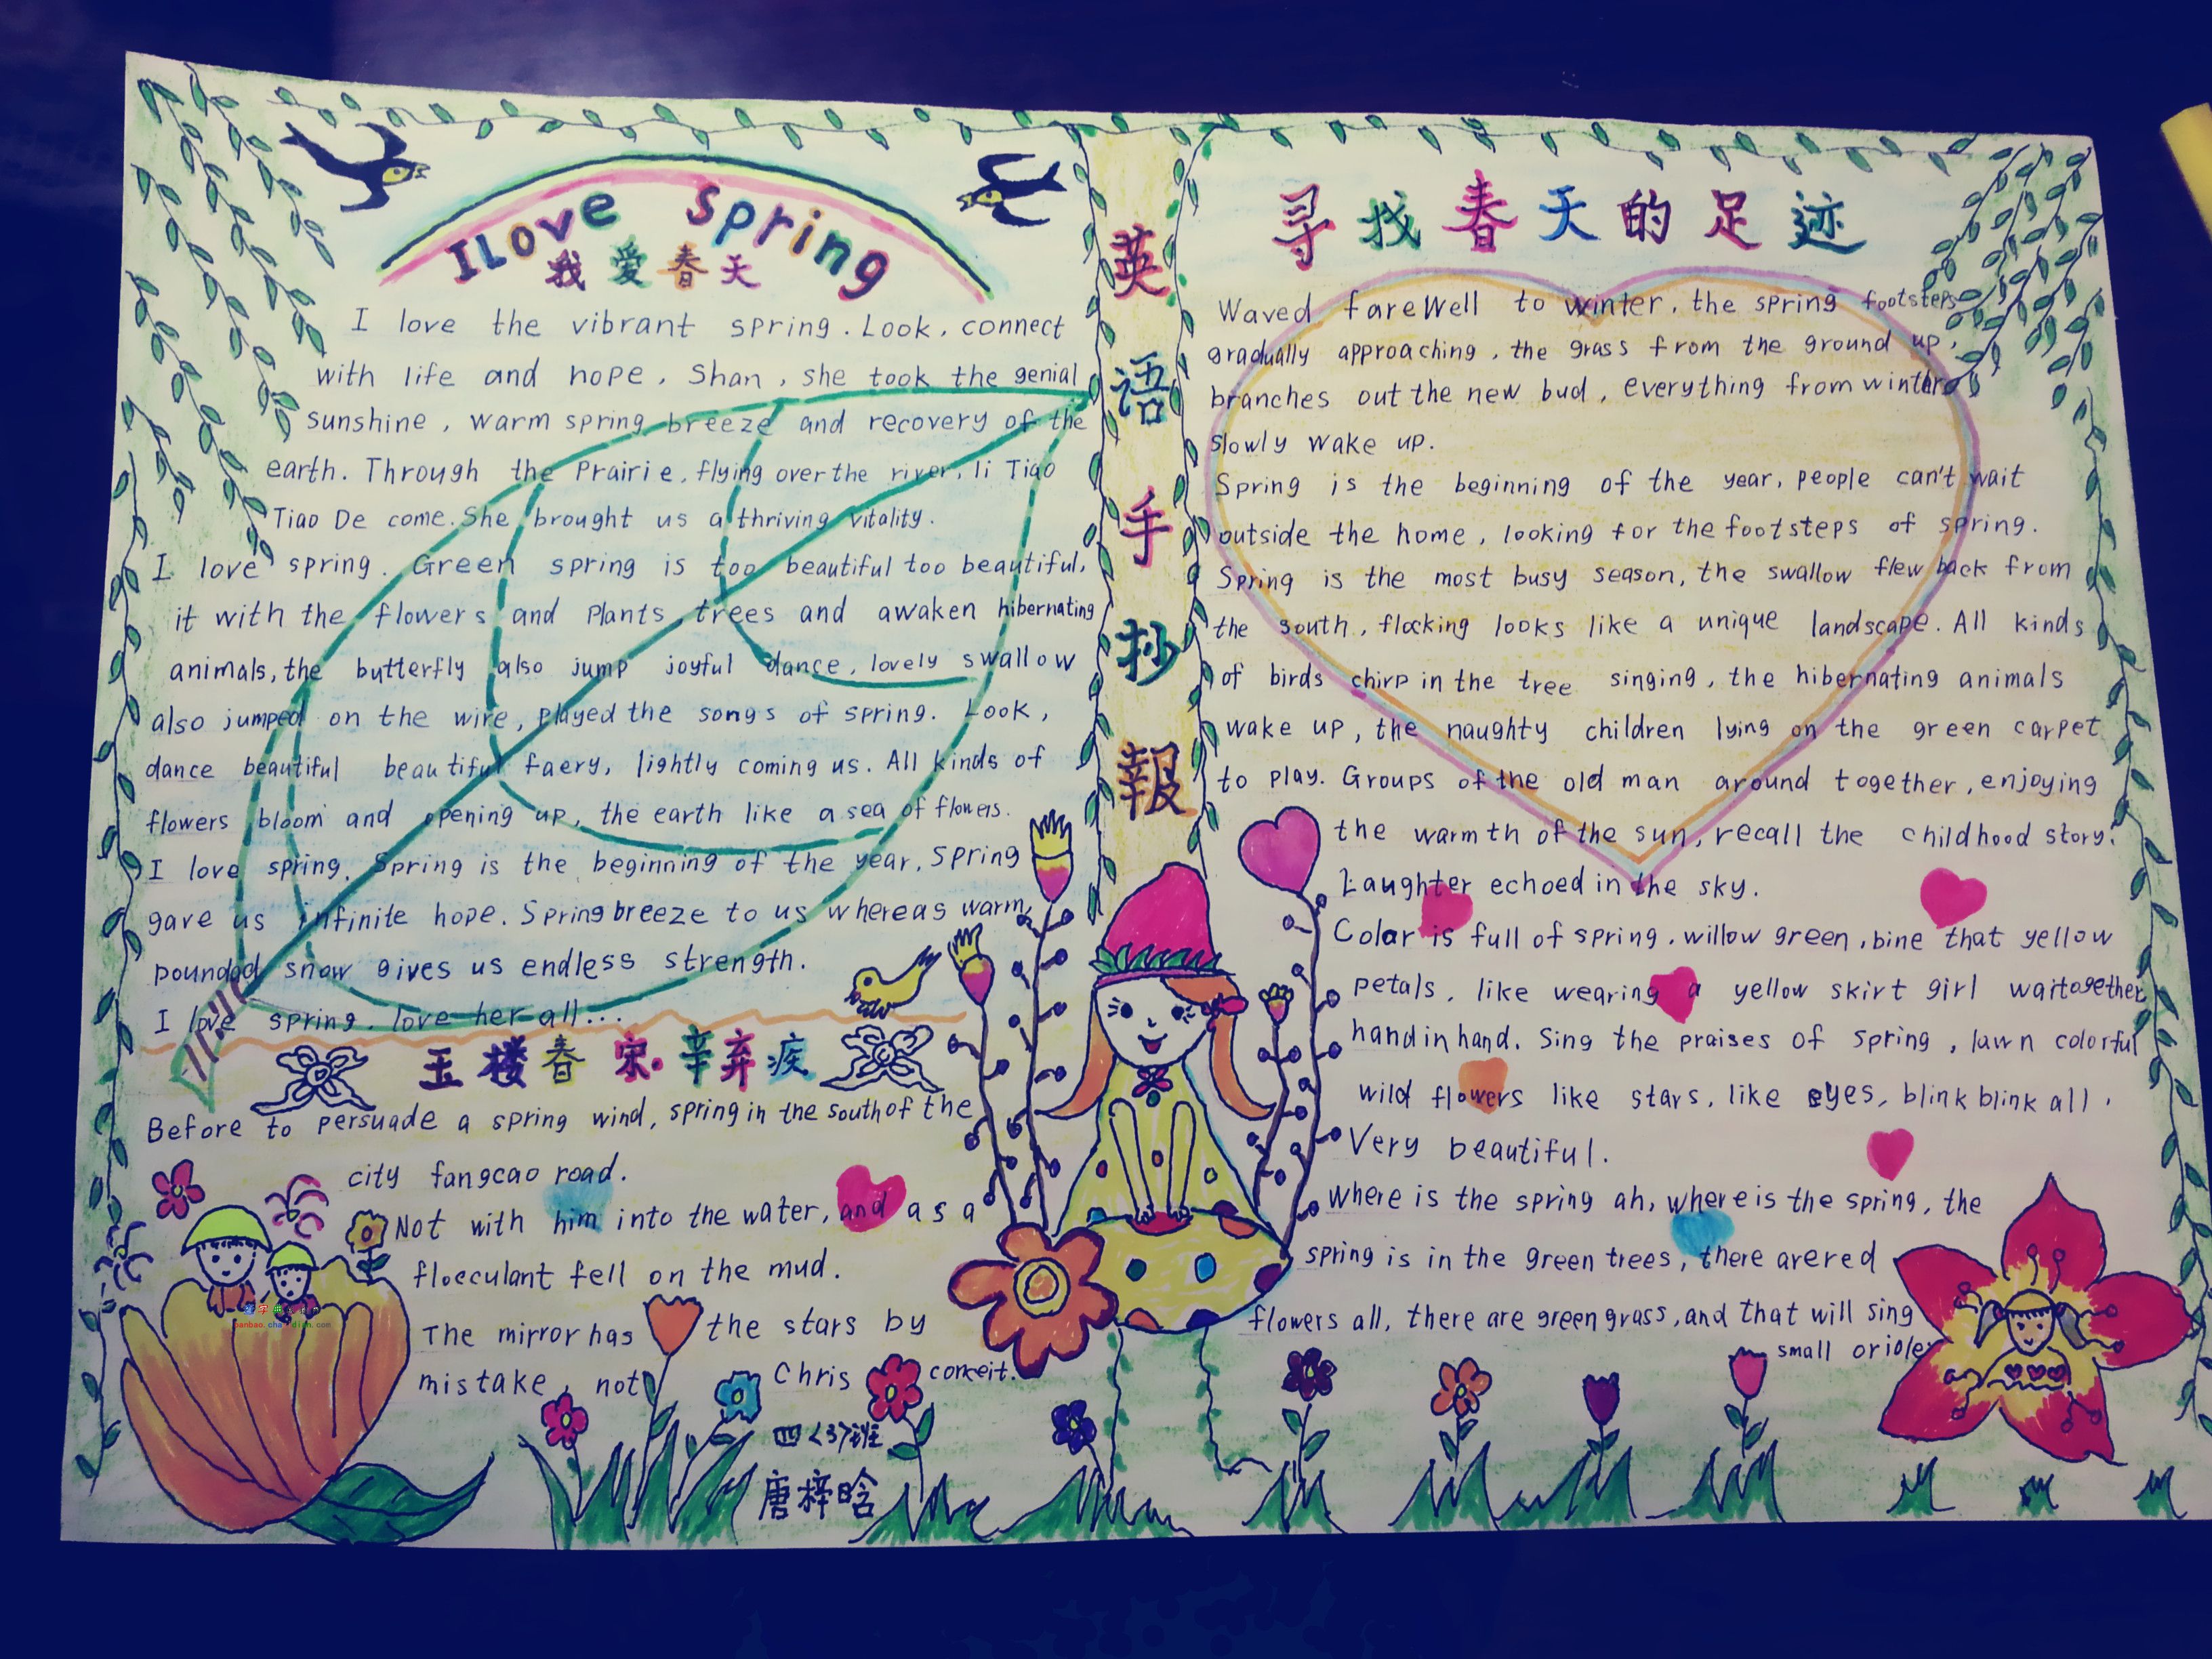 I Love Spring
我爱春天
I love the vibrant spring. Look, connect
with life and hope, Shan, she took the genial
sunshine, warm spring breeze and recovery of the
earth. Through the Prairie, flying over the river, li Tiao
Tiao De come. She brought us a thriving vitality.
I love spring. Green spring is too beautiful too beautiful,
it with the flowers and plants, trees and awaken hibernating
animals, the butterfly also jump joyful dance, lovely swallow
also jumped on the wire, played the songs of spring. Look,
dance beautiful beautiful faery, lightly coming us. All kinds of
flowers bloom and opening up, the earth like a sea of flowers.
I love spring. Spring is the beginning of the year, spring
gave us infinite hope. Spring breeze to us whereas warm,
pounded snow gives us endless strength.
I love spring, love her all...
玉楼春 宋·辛弃疾
Before to persuade a spring wind, spring in the south of the
city fangcao road.
Not with him into the water, and as a
flocculant fell on the mud.
The mirror has the stars by
mistake, not Chris conceit.
四<3>班
唐梓晗
英语手抄報
寻找春天的足迹
Waved fareWell to winter, the spring footsteps
gradually approaching, the grass from the ground up,
branches out the new bud, everything from winter
slowly wake up.
Spring is the beginning of the year, people can't wait
outside the home, looking for the footsteps of spring.
Spring is the most busy season, the swallow flew back from
the south, flocking looks like a unique landscape. All kinds
of birds chirp in the tree singing, the hibernating animals
wake up, the naughty children lying on the green carpet
to play. Groups of the old man around together, enjoying
the warmth of the sun, recall the childhood story.
Laughter echoed in the sky.
Color is full of spring, willow green, bine that yellow
petals, like wearing a yellow skirt girl waitogether
hand in hand. Sing the praises of spring, lawn colorful
wild flowers like stars, like eyes, blink blink all.
Very beautiful.
Where is the spring ah, where is the spring, the
spring is in the green trees, there are red
flowers all, there are green grass, and that will sing
small oriole.